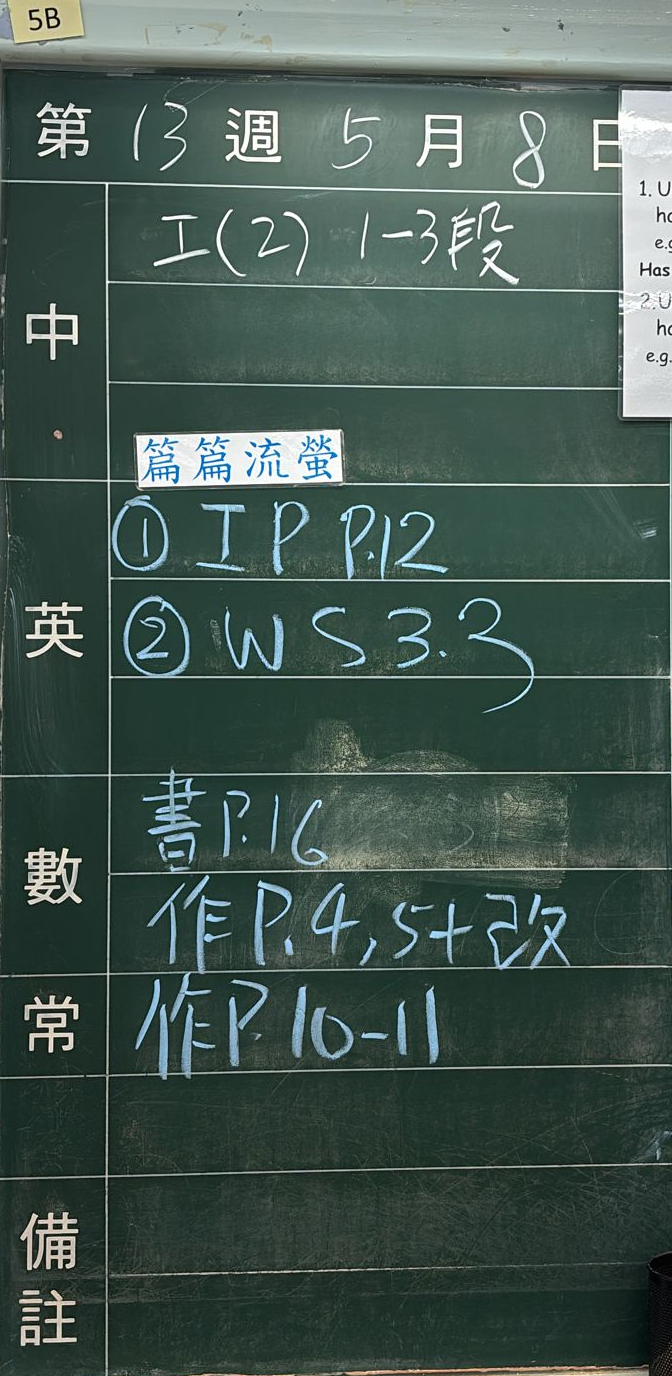 5B
第 13 週 5 月 8 日
中
工(2) 1-3段
篇篇流螢
英
① IP P.12
② WS 3.3
數
書P.16
作P.4,5+改
常
作P.10-11
備註
1. U
ha
e.g
Has
2. U
ha
e.g.